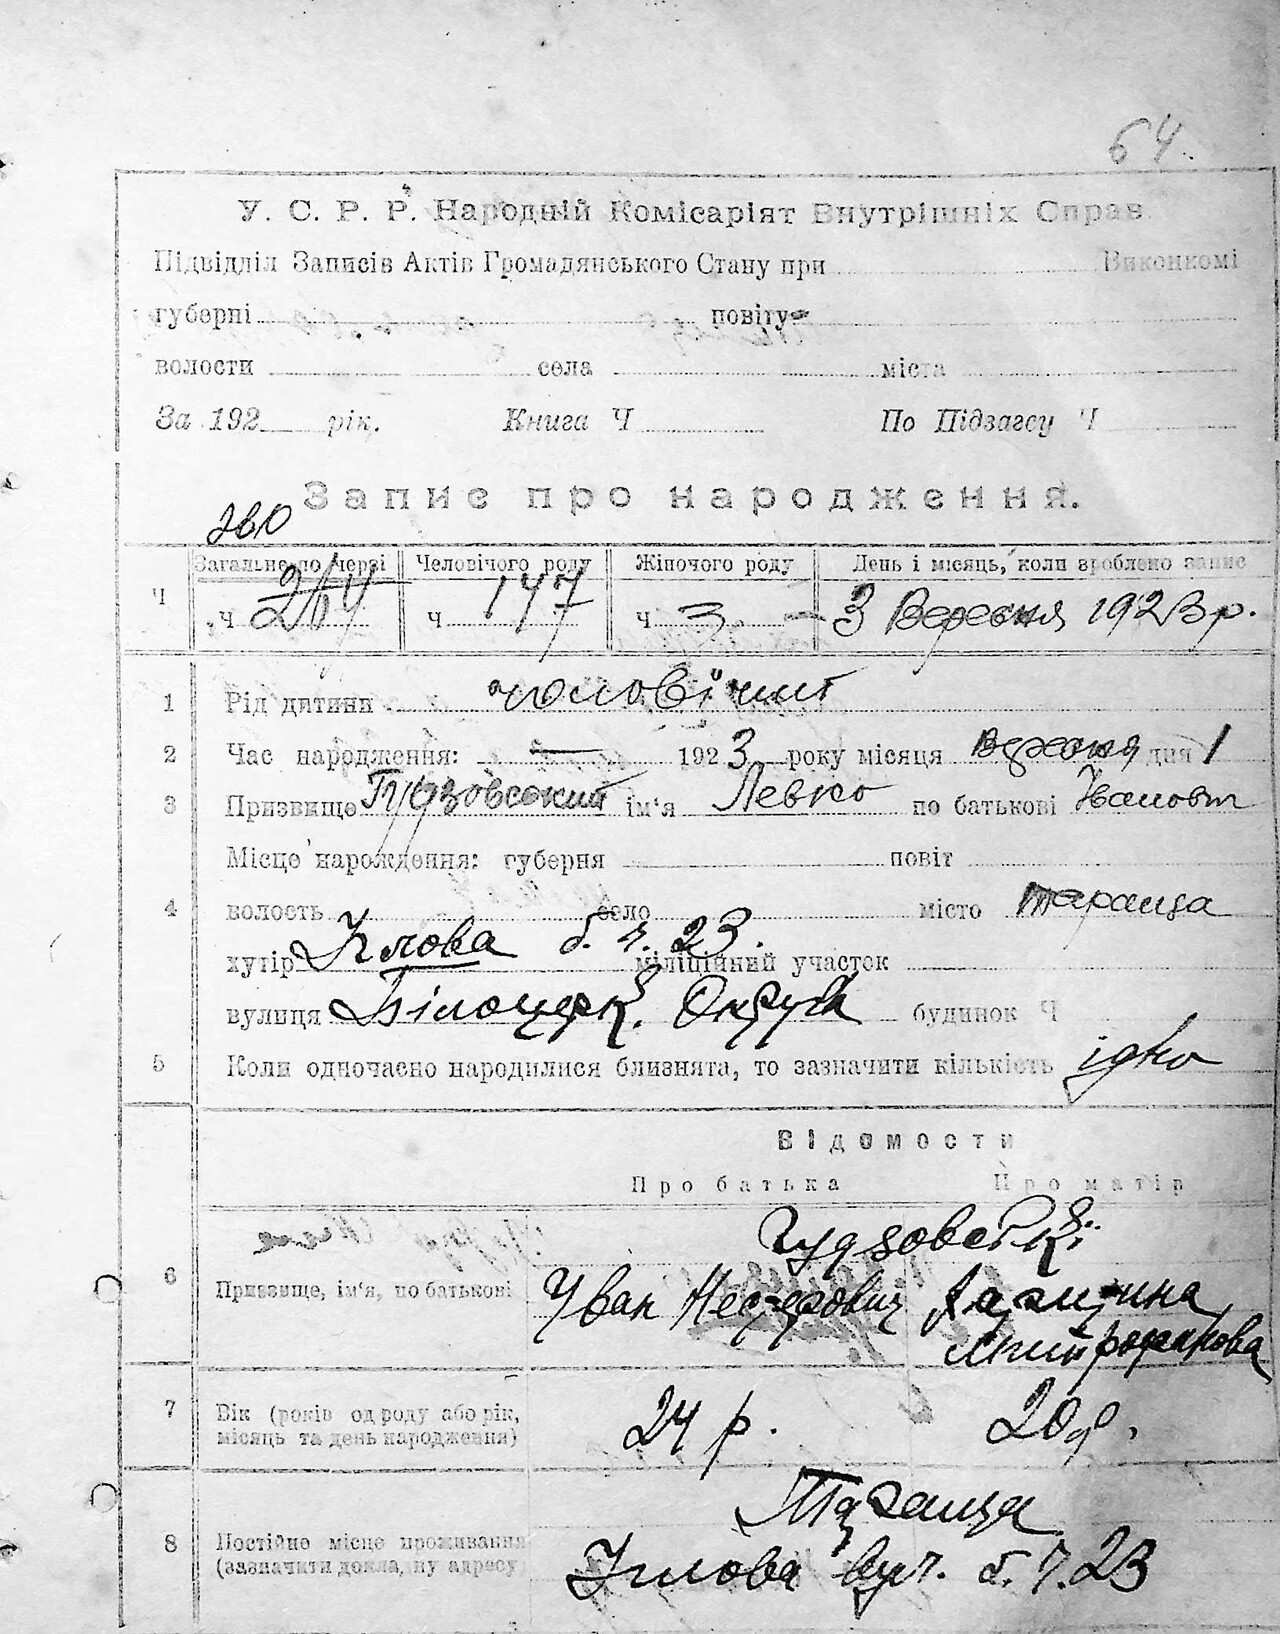 64.
У. С. Р. Р. Народній Комісаріят Внутрішніх Справ.
Підвідділ Записів Актів Громадянського Стану при Виконкомі
губерні повіту
волости села міста
За 192 рік. Книга Ч По Підзагсу Ч
Запис про народження.
Загальне по черзі Человічого роду Жіночого роду День і місяць, коли зроблено запис
Ч Ч 264 Ч 147 Ч 3 Вересня 1923 р.
1 Рід дитини чоловічит
2 Час народження: 1923 року місяця Вересня дня 1
3 Призвище Гудзовський ім'я Левко по батькові Іванович
Місце народження: губерня повіт
4 волость село місто Тараща
хутір б. ч. 23. міліційний участок
вулиця Білоцерк. Округи будинок Ч
5 Коли одночасно народилися близнята, то зазначити кількість
Відомости
Про батька Про матір
Гудзовські
6 Призвище, ім'я, по батькові Іван Нестерович
Митрофанова
7 Вік (років од роду або рік, місяць та день народження) 24 р. 20 р.
Тараща
8 Постійне місце проживання (зазначити докладну адресу) вул. б. ч. 23